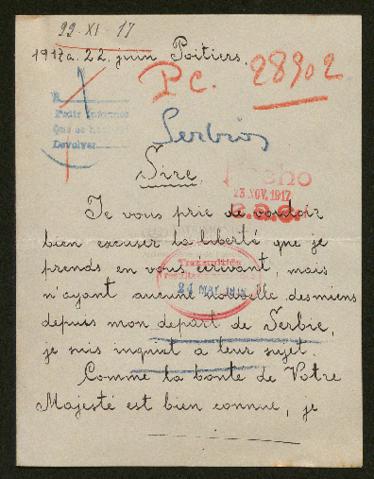 22-XI-17
1917 a. 22. juin Poitiers.
Pc. 28902
Pedir informes
Devolver
Serbios
Sire,
23 NOV. 1917
Je vous prie de vouloir
bien excuser la liberté que je
prends en vous écrivant, mais
n'ayant aucune nouvelle des miens
24 MAI
depuis mon depart de Serbie,
je suis inquiet à leur sujet.
Comme la bonté de Votre
Majesté est bien connue, je